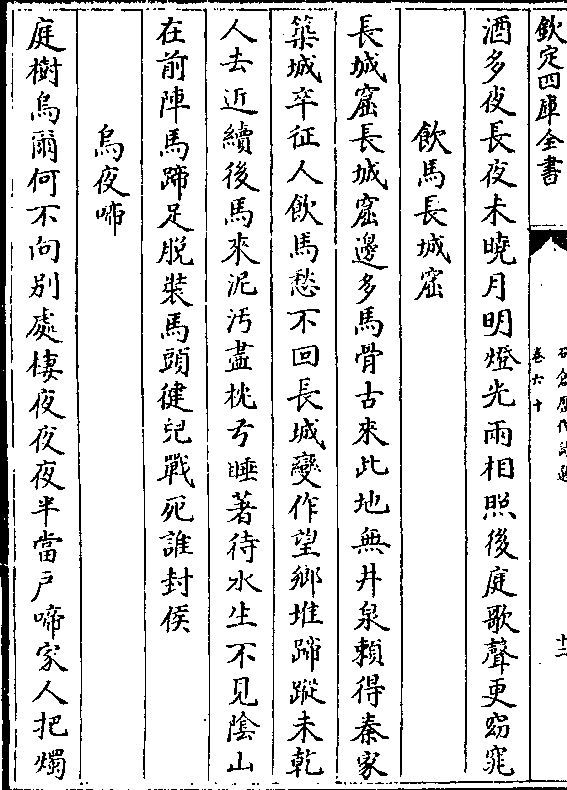 欽定四庫全書
石倉歷代詩選
卷六十
十二
酒多夜長夜未曉月明燈光兩相照後庭歌聲更窈窕
飲馬長城窟
長城窟長城窟邊多馬骨古來此地無井泉頼得秦家
築城卒征人飲馬愁不回長城變作望鄉堆蹄蹤未乾
人去近續後馬來泥汚盡枕弓睡著待水生不見陰山
在前陣馬蹄足脫裝馬頭健兒戰死誰封侯
烏夜啼
庭樹烏爾何不向別處棲夜夜夜半當户啼家人把燭